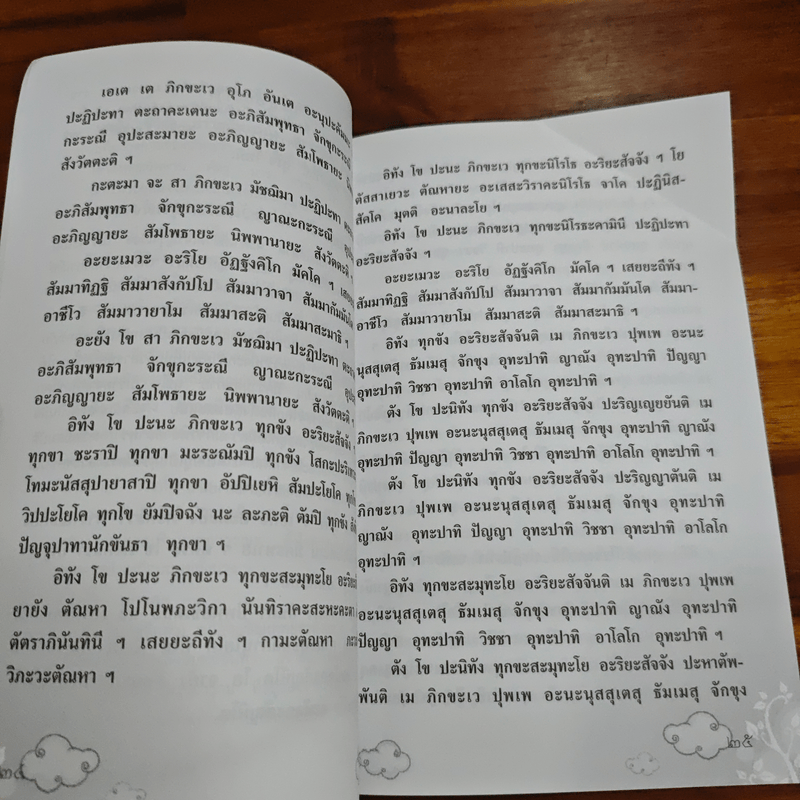 เอเต เต ภิกขะเว อุโภ อันเต อะนุปะคัมมะ
ปะฏิปะทา ตะถาคะเตนะ อะภิสัมพุทธา จักขุกะระณี
กะระณี อุปะสะมายะ อะภิญญายะ สัมโพธายะ
สังวัตตะติ ฯ
กะตะมา จะ สา ภิกขะเว มัชฌิมา ปะฏิปะทา
อะภิสัมพุทธา จักขุกะระณี ญาณะกะระณี
อะภิญญายะ สัมโพธายะ นิพพานายะ สังวัตตะติ
อะยะเมวะ อะริโย อัฏฐังคิโก มัคโค ฯ
สัมมาทิฏฐิ สัมมาสังกัปโป สัมมาวาจา สัมมากัมมันโต
อาชีโว สัมมาวายาโม สัมมาสะติ สัมมาสะมาธิ ฯ
อะยัง โข สา ภิกขะเว มัชฌิมา ปะฏิปะทา
อะภิสัมพุทธา จักขุกะระณี ญาณะกะระณี
อะภิญญายะ สัมโพธายะ นิพพานายะ สังวัตตะติ ฯ
อิทัง โข ปะนะ ภิกขะเว ทุกขัง อะริยะสัจจัง ฯ
ทุกขา ชะราปิ ทุกขา มะระณัมปิ ทุกขัง
โทมะนัสสุปายาสาปิ ทุกขา อัปปิเยหิ สัมปะโยโค
วิปปะโยโค ทุกโข ยัมปิจฉัง นะ ละภะติ ตัมปิ ทุกขัง
ปัญจุปาทานักขันธา ทุกขา ฯ
อิทัง โข ปะนะ ภิกขะเว ทุกขะสะมุทะโย
ยายัง ตัณหา โปโนพภะวิกา นันทิราคะสะหะคะตา
ตัตราภินันทินี ฯ เสยยะถีทัง ฯ กามะตัณหา
วิภะวะตัณหา ฯ
๒๔
อิทัง โข ปะนะ ภิกขะเว ทุกขะนิโรโธ อะริยะสัจจัง ฯ โย
ตัสสาเยวะ ตัณหายะ อะเสสะวิราคะนิโรโธ จาโค ปะฏินิส-
สัคโค มุตติ อะนาละโย ฯ
อิทัง โข ปะนะ ภิกขะเว ทุกขะนิโรธะคามินี ปะฏิปะทา
อะริยะสัจจัง ฯ
อะยะเมวะ อะริโย อัฏฐังคิโก มัคโค ฯ เสยยะถีทัง ฯ
สัมมาทิฏฐิ สัมมาสังกัปโป สัมมาวาจา สัมมากัมมันโต สัมมา-
อาชีโว สัมมาวายาโม สัมมาสะติ สัมมาสะมาธิ ฯ
อิทัง ทุกขัง อะริยะสัจจันติ เม ภิกขะเว ปุพเพ อะนะ
นุสสุเตสุ ธัมเมสุ จักขุง อุทะปาทิ ญาณัง อุทะปาทิ ปัญญา
อุทะปาทิ วิชชา อุทะปาทิ อาโลโก อุทะปาทิ ฯ
ตัง โข ปะนิทัง ทุกขัง อะริยะสัจจัง ปะริญเญยยันติ เม
ภิกขะเว ปุพเพ อะนะนุสสุเตสุ ธัมเมสุ จักขุง อุทะปาทิ ญาณัง
อุทะปาทิ ปัญญา อุทะปาทิ วิชชา อุทะปาทิ อาโลโก อุทะปาทิ ฯ
ตัง โข ปะนิทัง ทุกขัง อะริยะสัจจัง ปะริญญาตันติ เม
ภิกขะเว ปุพเพ อะนะนุสสุเตสุ ธัมเมสุ จักขุง อุทะปาทิ
ญาณัง อุทะปาทิ ปัญญา อุทะปาทิ วิชชา อุทะปาทิ อาโลโก
อุทะปาทิ ฯ
อิทัง ทุกขะสะมุทะโย อะริยะสัจจันติ เม ภิกขะเว ปุพเพ
อะนะนุสสุเตสุ ธัมเมสุ จักขุง อุทะปาทิ ญาณัง อุทะปาทิ
ปัญญา อุทะปาทิ วิชชา อุทะปาทิ อาโลโก อุทะปาทิ ฯ
ตัง โข ปะนิทัง ทุกขะสะมุทะโย อะริยะสัจจัง ปะหาตัพ-
พันติ เม ภิกขะเว ปุพเพ อะนะนุสสุเตสุ ธัมเมสุ จักขุง
๒๕